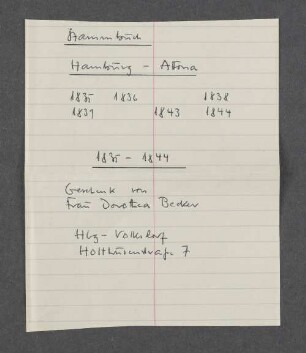 Stammbuch
Hamburg - Altona
1835 1836 1838
1839 1843 1844
1835 - 1844
Geschenk von
Frau Dorothea Becker
Hbg - Volksdorf
7